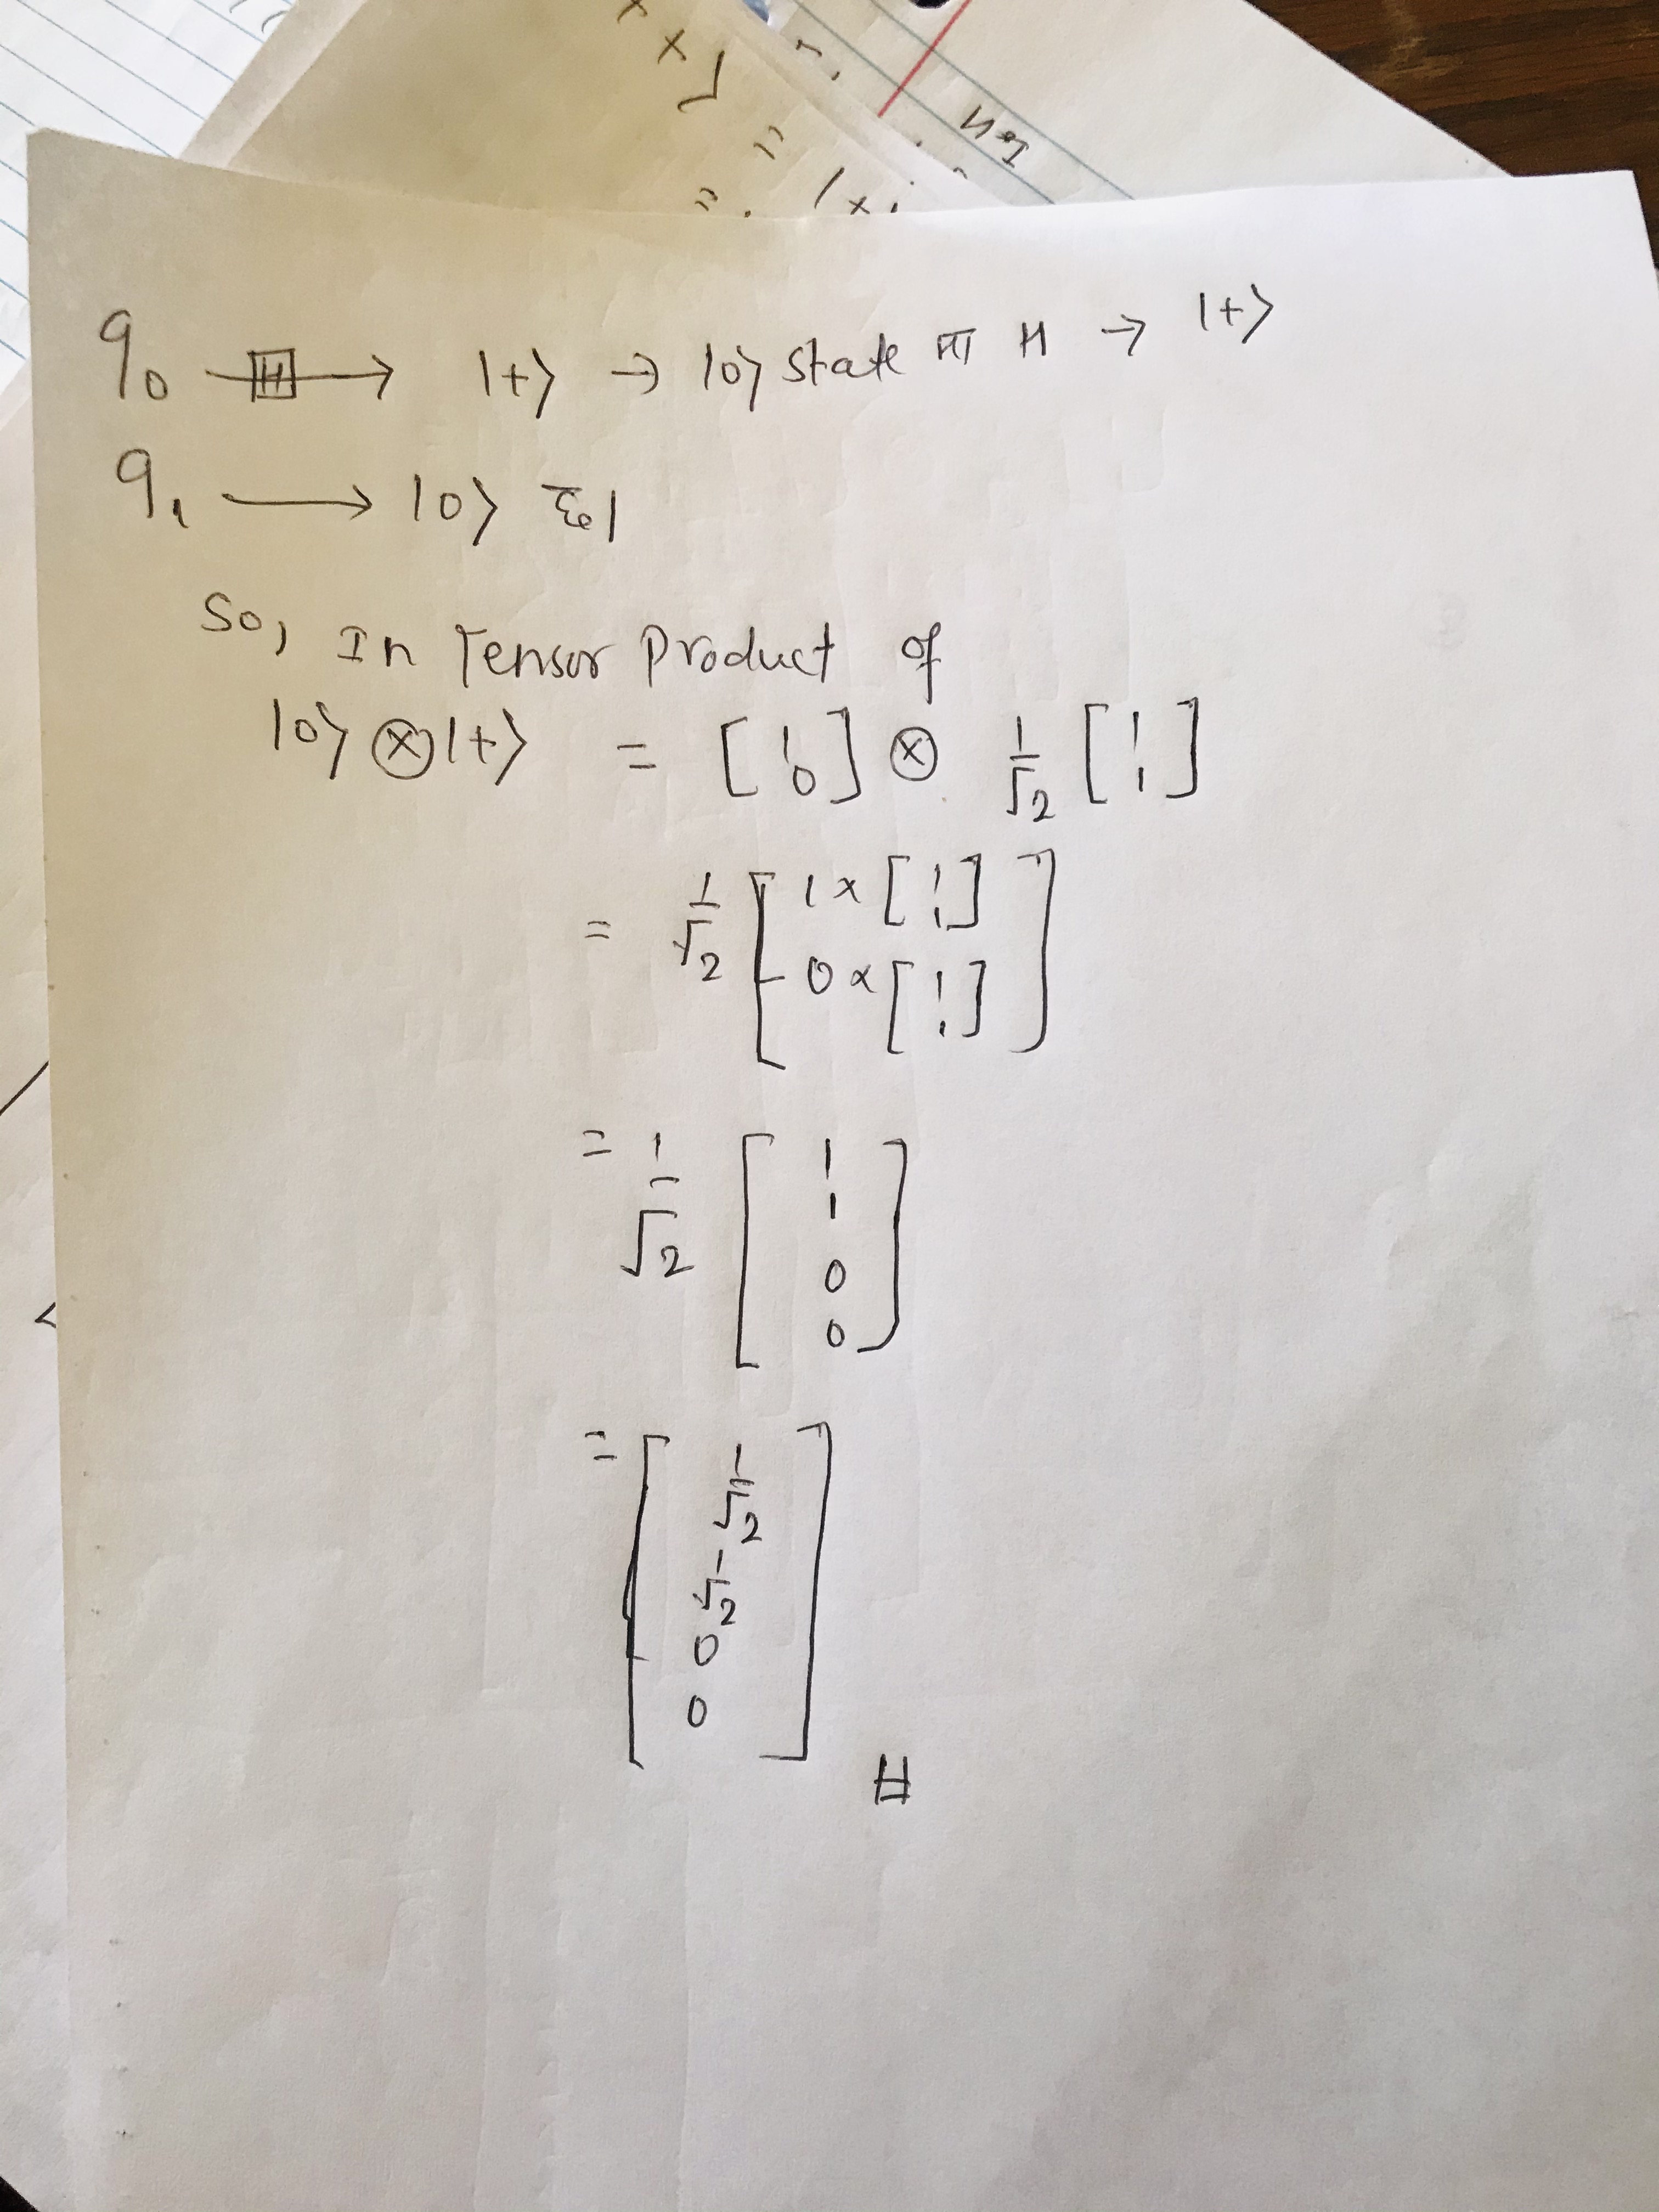 q₀ —[H]→ |+⟩ → |0⟩ state मा H → |+⟩
q₁ ⟶ |0⟩ छ।
So, In Tensor Product of
|0⟩ ⊗ |+⟩ = [1 0] ⊗ 1/√2 [1 1]
= 1/√2 [1 × [1 1] 0 × [1 1]]
= 1/√2 [1 1 0 0]
= [1/√2 1/√2 0 0]
#